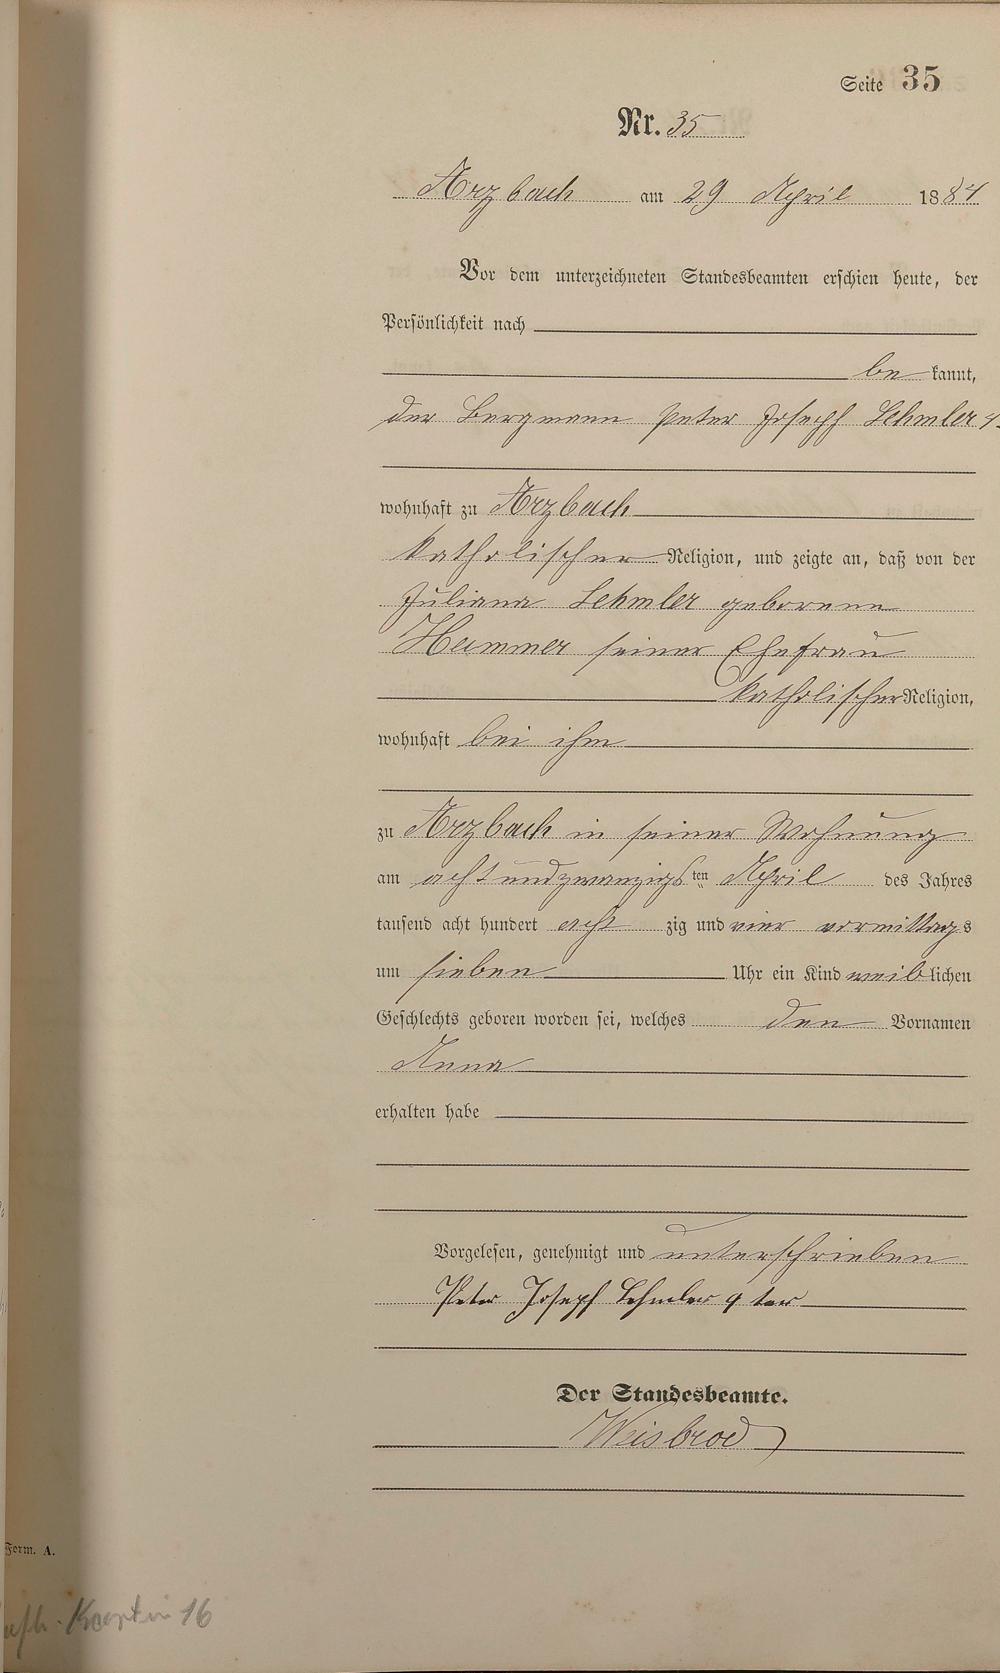 Seite 35
Nr. 35
Arzbach am 29 April 1884
Vor dem unterzeichneten Standesbeamten erschien heute, der
Persönlichkeit nach
be kannt,
der Bergmann Peter Joseph Lehmler 4.
wohnhaft zu Arzbach
katholischer Religion, und zeigte an, daß von der
Juliana Lehmler geborene
Hammer seiner Ehefrau
katholischer Religion,
wohnhaft bei ihm
zu Arzbach in seiner Wohnung
am acht und zwanzigsten April des Jahres
tausend acht hundert acht zig und vier vormittags
um sieben Uhr ein Kind weiblichen
Geschlechts geboren worden sei, welches den Vornamen
Anna
erhalten habe
Vorgelesen, genehmigt und unterschrieben
Peter Joseph Lehmler 4 ter
Der Standesbeamte.
Weisbrod
Form. A.
16